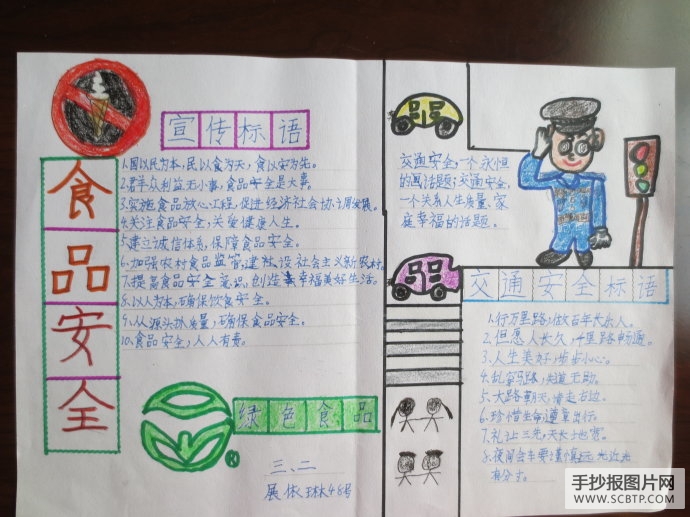 宣传标语
食品安全
1.国以民为本,民以食为天,食以安为先。
2.君羊众利益无小事,食品安全是大事。
3.实施食品放心工程,促进经济社会协调发展。
4.关注食品安全,关爱健康人生。
5.建立诚信体系,保障食品安全。
6.加强农村食品监管,建设社会主义新农村。
7.提高食品安全意识,创造幸福美好生活。
8.以人为本,确保饮食安全。
9.从源头抓质量,确保食品安全。
10.食品安全,人人有责。
绿色食品
R
三、二
展依琳48号
交通安全,一个永恒
的话题;交通安全,
一个关系人生质量、家
庭幸福的话题。
交通安全标语
1.行万里路,做百年长乐人。
2.但愿人长久,千里路畅通。
3.人生美好,步步小心。
4.乱穿马路,失道无助。
5.大路朝天,请走右边。
6.珍惜生命,遵章出行。
7.礼让三先,天长地宽。
8.夜间会车要懂得远光近光
有分寸。
手抄报图片网
WWW.SCBTP.COM